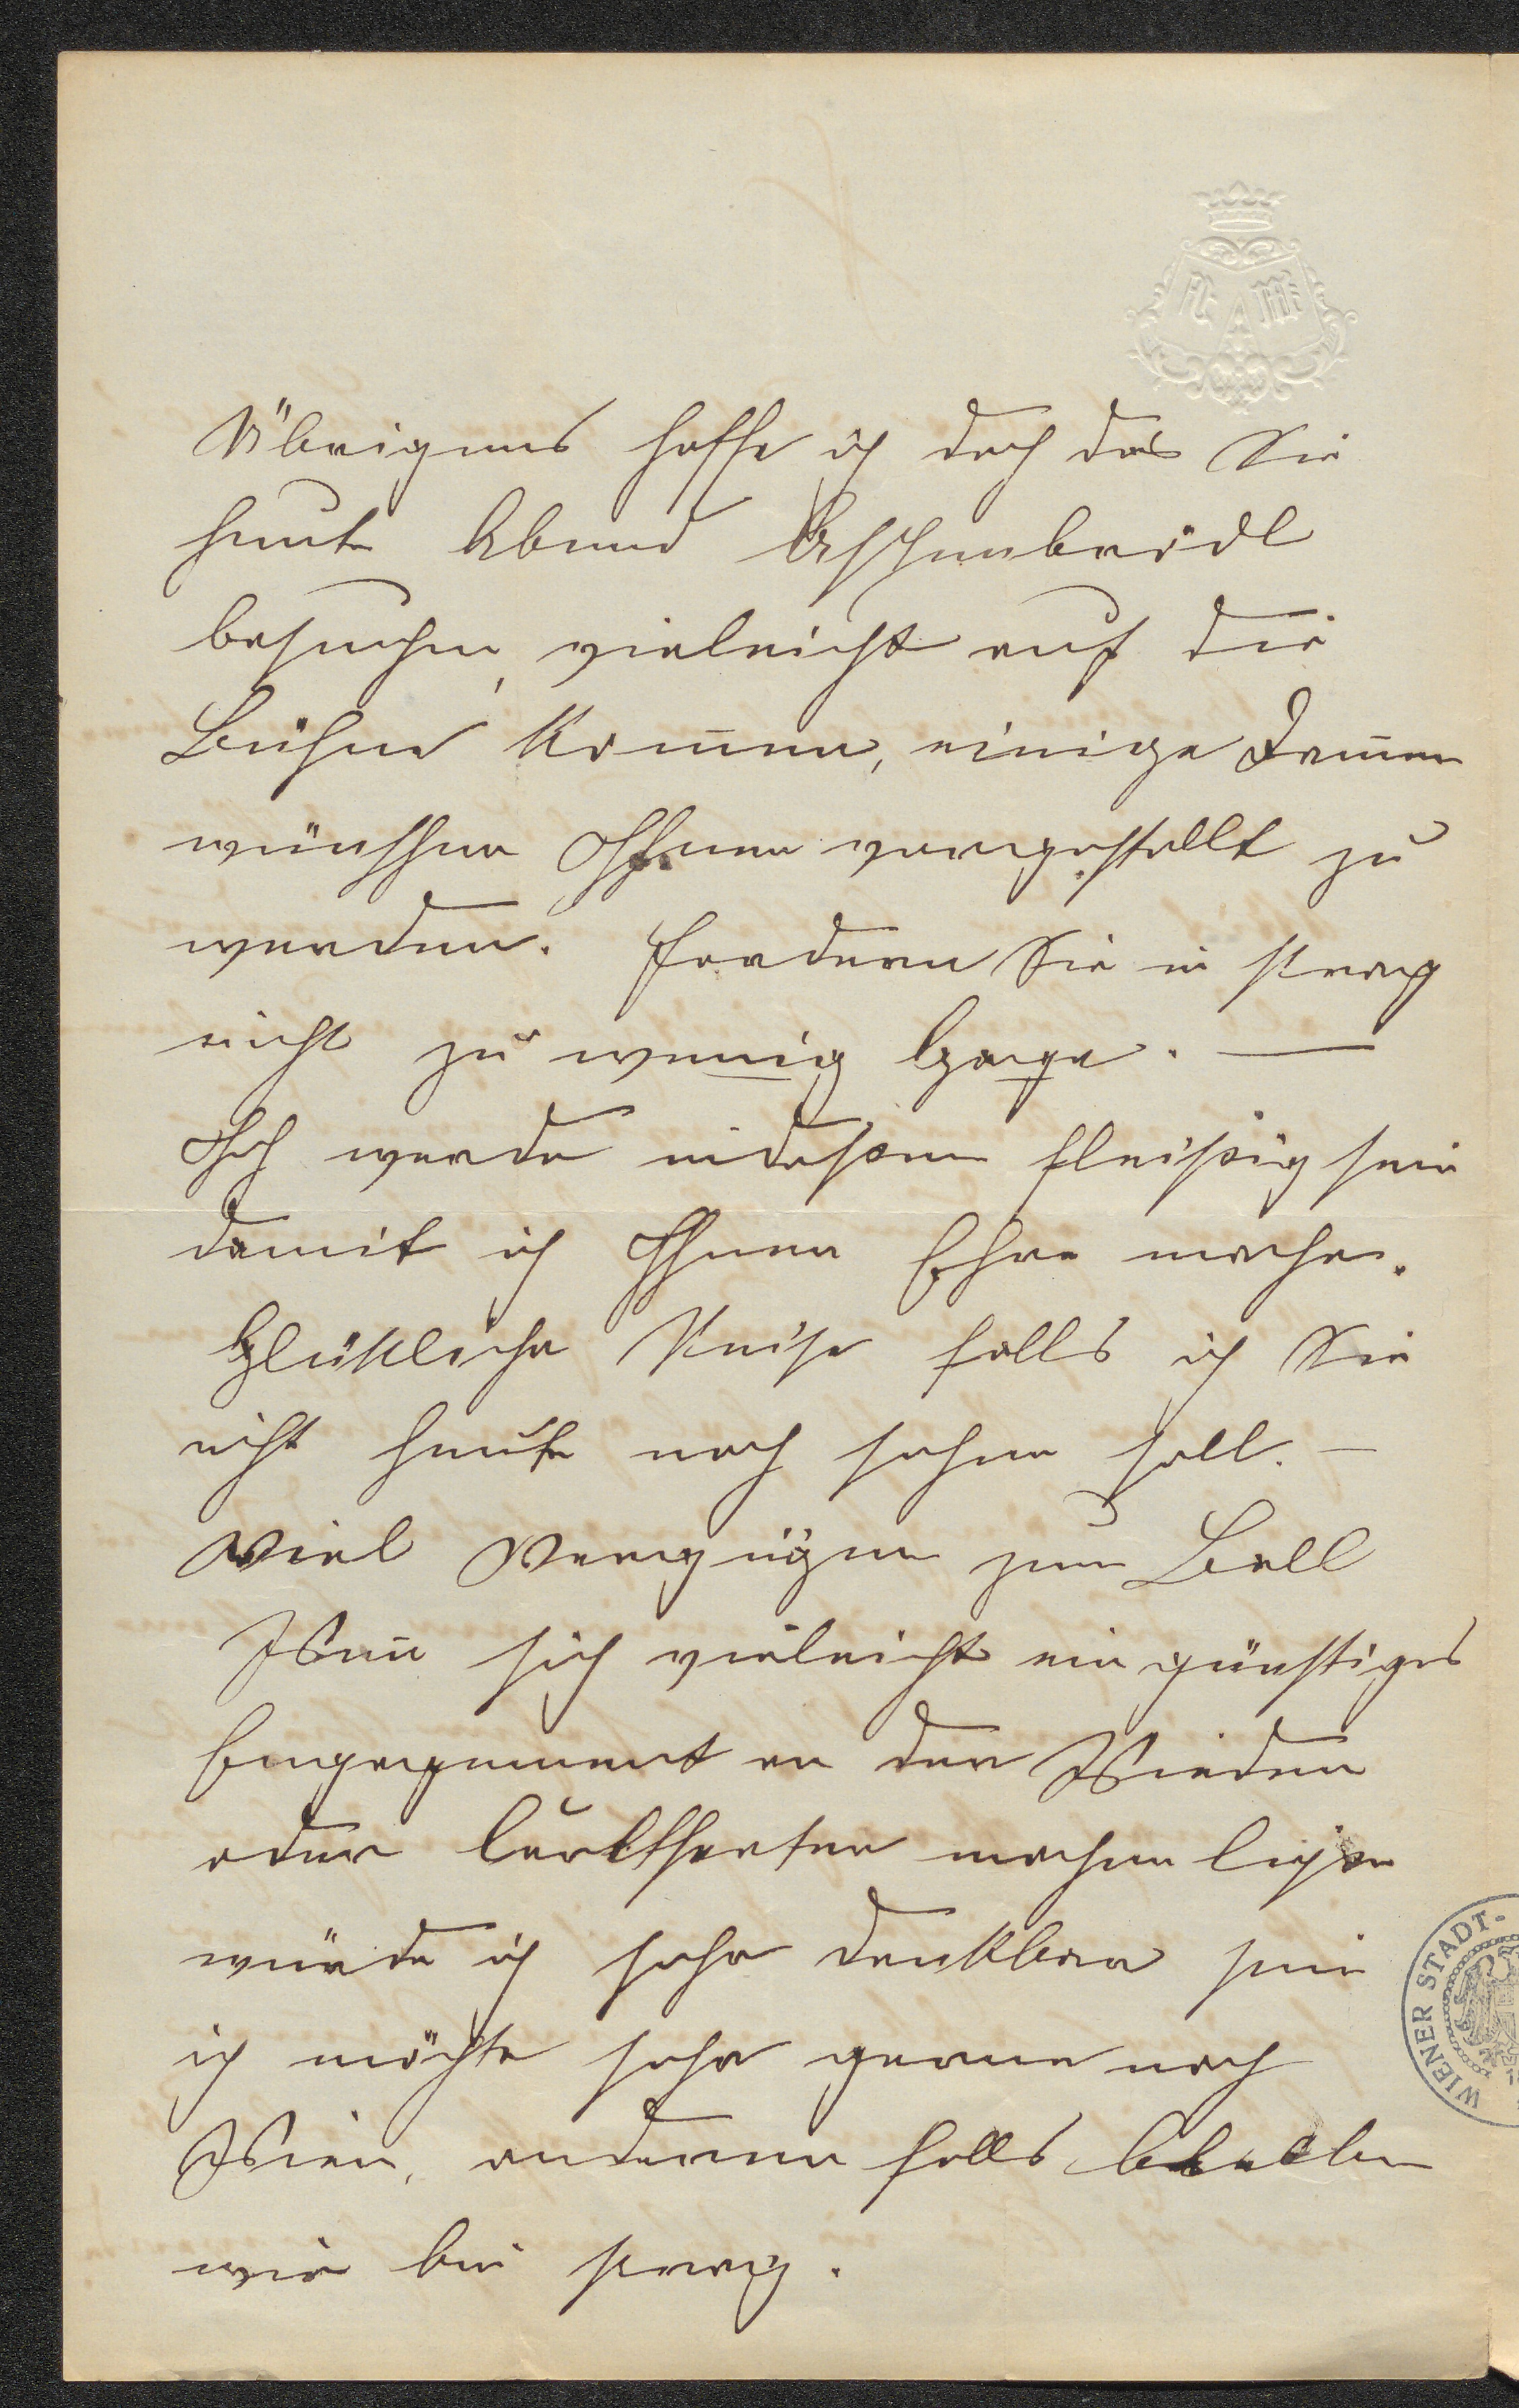 Übrigens hoffe ich doch das Sie
heute Abend Aschenbrödl
besuchen, vieleicht auf die
Bühne kom̄en, einige Damen
wünschen Ihnen vorgestellt zu
werden. Fordern Sie in Prag
nicht zu wenig Gage. —
Ich werde indessen fleißig sein
damit ich Ihnen Ehre mache.
Glükliche Reise falls ich Sie
nicht heute noch sehen soll. —
Viel Vergnügen zum Ball
Wen̄ sich vieleicht ein günstiges
Engagement an der Wieden
oder Carltheater machen ließe
würde ich sehr dankbar sein
ich möchte sehr gerne nach
Wien, anderen falls bleiben
wir bei Prag.
WIENER STADT-